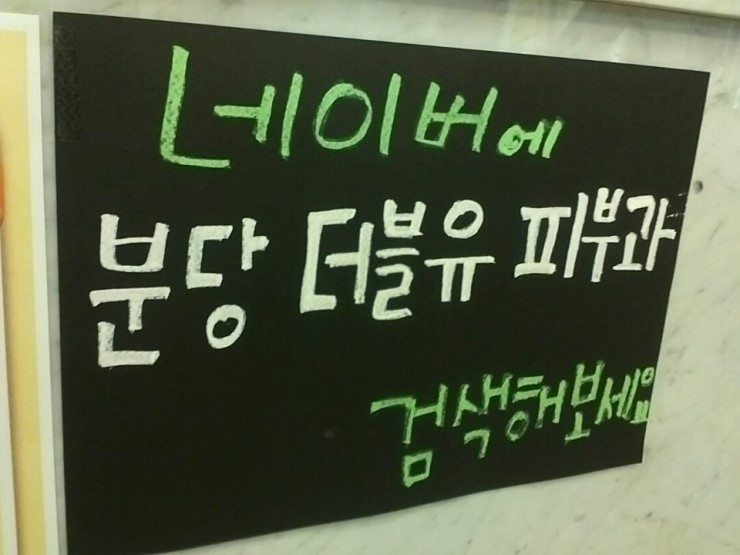 네이버에
분당 더블유 피부과
검색해보세요